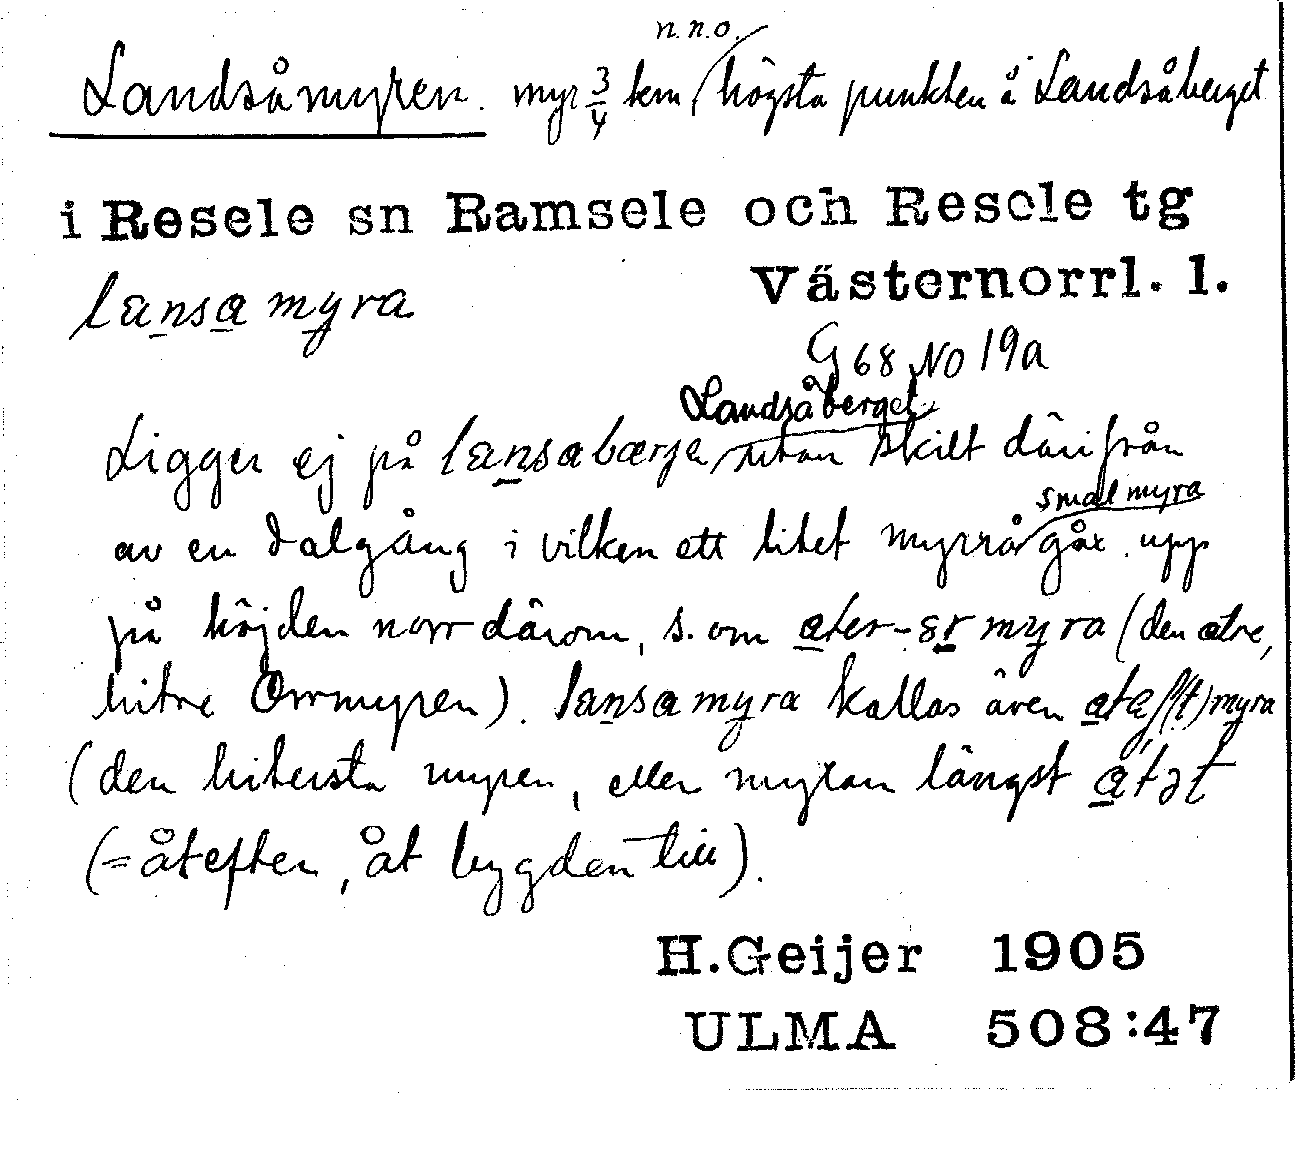 Landsåmyren. myr 3/4 km n.n.o. högsta punkten å Landsåberget
i Resele sn Ramsele och Resele tg
Västernorrl. l.
lansa myra
G 68 NO 19a
Ligger ej på lansabærje, Landsåberget utan skilt därifrån
av en dalgång i vilken ett litet myrrå smal myra går upp
på höjden norr därom, s. om ater-ər myra (den atre,
hitre Orrmyren). lansa myra kallas även myra
(den hitersta myren, eller myran längst åtət
(= åtefter, åt bygden till).
H.Geijer 1905
ULMA 508:47